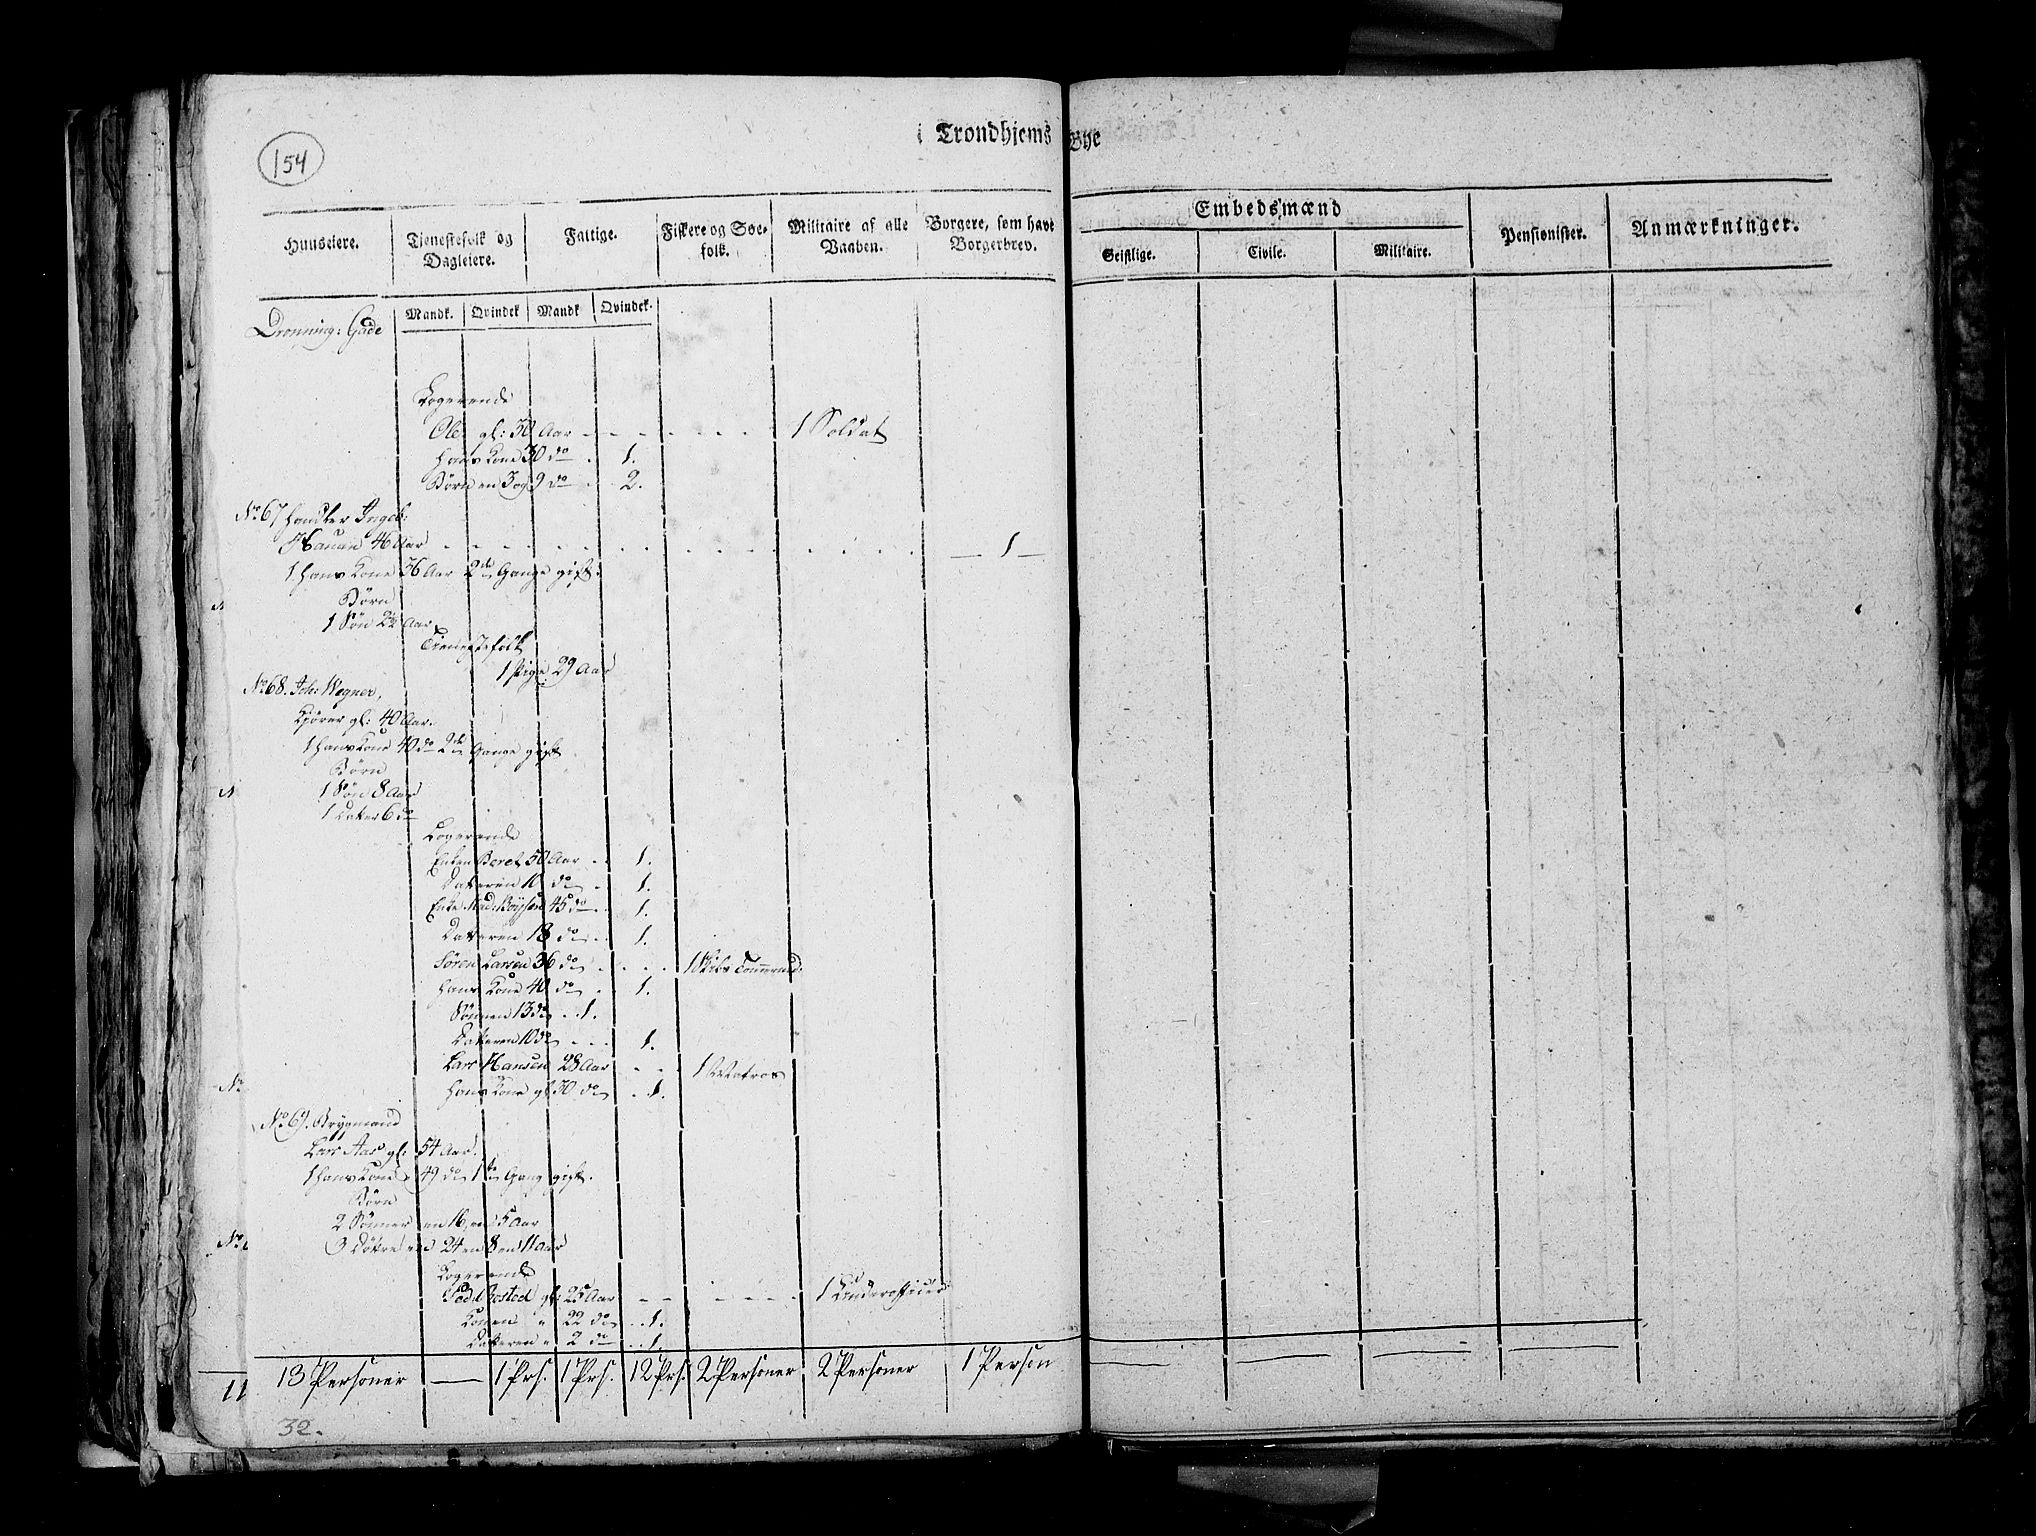 154
i Trondhjems Bye
Huuseiere. Tjenestefolk og Dagleiere. Fattige. Fiskere og Søefolk. Militaire af alle Vaaben. Borgere, som have Borgerbrev. Embedsmænd Pensionister. Anmærkninger.
Geistlige. Civile. Militaire.
Mandk. Qvindek Mandk Qvindek.
Dronning: Gade
Logerende
Ole gl: 30 Aar - - - - - - 1 Soldat
Hans Kone 30 do . 1.
Børn en 3 og 9 do . 2.
No. 67 Handler Ingeb:
Hauan 46 Aar - - - - - - - - - - — 1 —
1 Hans Kone 36 Aar 2de Gange gift.
Børn
1 Søn 2¼ Aar
Tienestefolk
1 Pige 29 Aar
No. 68. Joh: Wegner,
Kjører gl: 40 Aar.
1 Hans Kone 40 do 2de Gange gift
Børn
1 Søn 8 Aar
1 Datter 6 do
Logerende
Enken Beret 50 Aar . . 1.
Datteren 10 do . 1.
Enke Mad: Boysen 45 do . . 1.
Datteren 18 do . . 1.
Søren Larsen 36 do . . . . 1 Skibs Tømmermd.
Hans Kone 40 do . 1.
Sønnen 13 do . . 1.
Datteren 10 do . . . 1.
Lars Hansen 28 Aar - - 1 Matros
Hans Kone gl: 30 do . . 1.
No. 69. Brygmand
Lars Aas gl: 54 Aar.
1 Hans Kone 49 do 1te Gang gift.
Børn
2 Sønner en 16, en 5 Aar
3 Døttre en 24 en 8 en 11 Aar
Logerende
gl: 25 Aar - - - - - - 1 Underofficier
Konen " 22 do . . 1.
Datteren " 2 do . . 1.
13 Personer — 1 Prs. 1 Prs. 12 Prs. 2 Personer 2 Personer 1 Person — — — —
32.